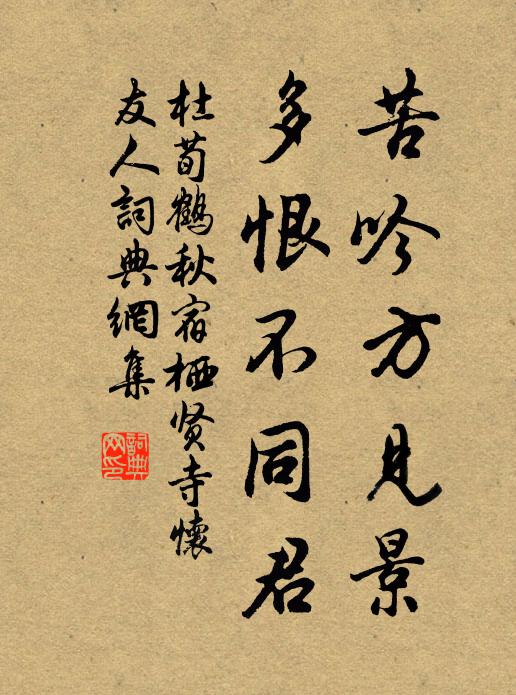 苦吟方見景
多恨不同君
杜荀鶴秋宿栖贤寺懷
友人詞典網集
詞典网印